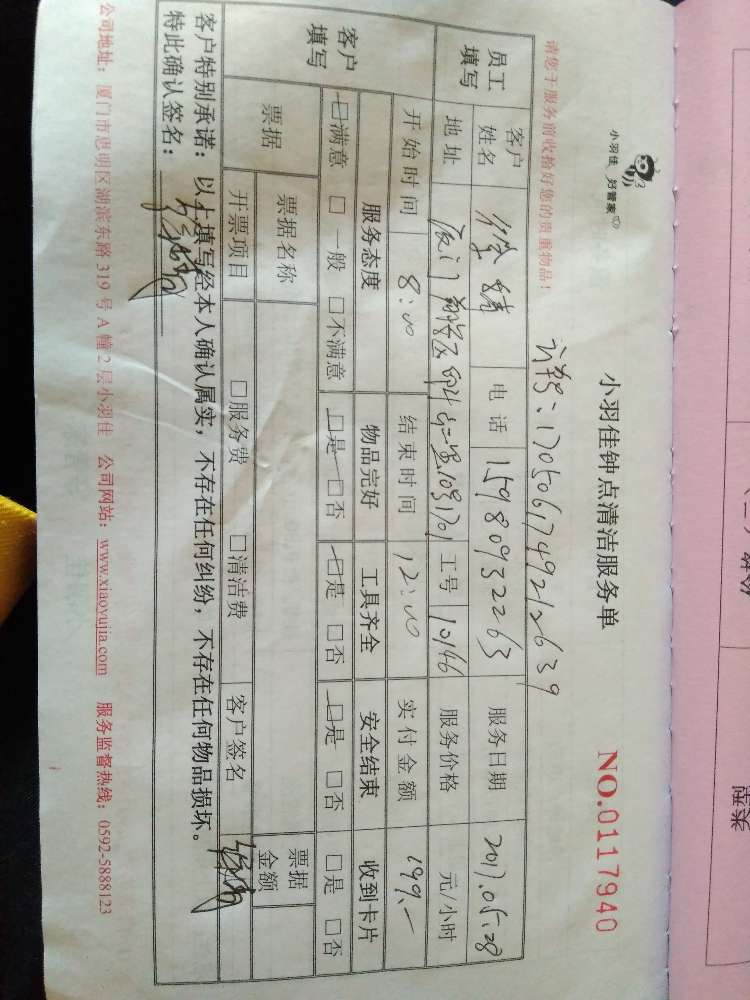 小羽佳 好管家
小羽佳钟点清洁服务单
NO.0117940
请您于服务前收拾好您的贵重物品!
订单号:1705061749212639
员工填写 客户姓名 电话 15980932263 服务日期 2017.05.28
地址 厦门 工号 10146 服务价格 元/小时
客户填写 开始时间 8:00 结束时间 12:00 实付金额 199.-
服务态度 物品完好 工具齐全 安全结束 收到卡片
☑满意 □一般 □不满意 ☑是 □否 ☑是 □否 ☑是 □否 □是 □否
票据 票据名称 票据金额
开票项目 □服务费 □清洁费 客户签名
客户特别承诺:以上填写经本人确认属实,不存在任何纠纷,不存在任何物品损坏。
特此确认签名:
公司地址:厦门市思明区湖滨东路 319 号 A 幢 2 层小羽佳 公司网站:www.xiaoyujia.com 服务监督热线:0592-5888123